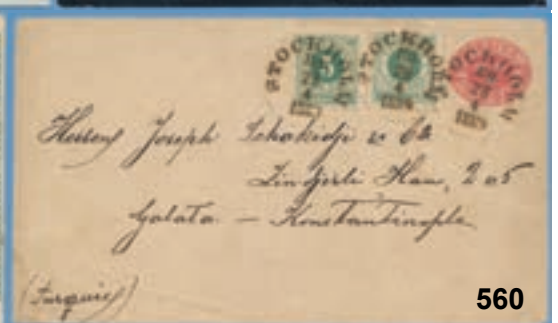 STOCKHOLM STOCKHOLM STOCKHOLM
5
Herren Joseph Schakidji & Co
Zindjirli Han, 205
Galata - Konstantinople
(Turquie)
560